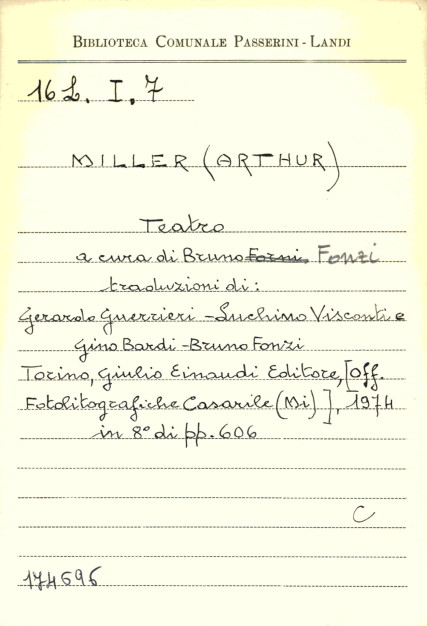 BIBLIOTECA COMUNALE PASSERINI - LANDI
16 L. I. 7
MILLER (ARTHUR)
Teatro
a cura di Bruno Forni. Fonzi
traduzioni di:
Gerardo Guerrieri - Luchino Visconti e
Gino Bardi - Bruno Fonzi
Torino, Giulio Einaudi Editore, [Off.
Fotolitografiche Casarile (Mi)], 1974
in 8° di pp. 606
C
174696